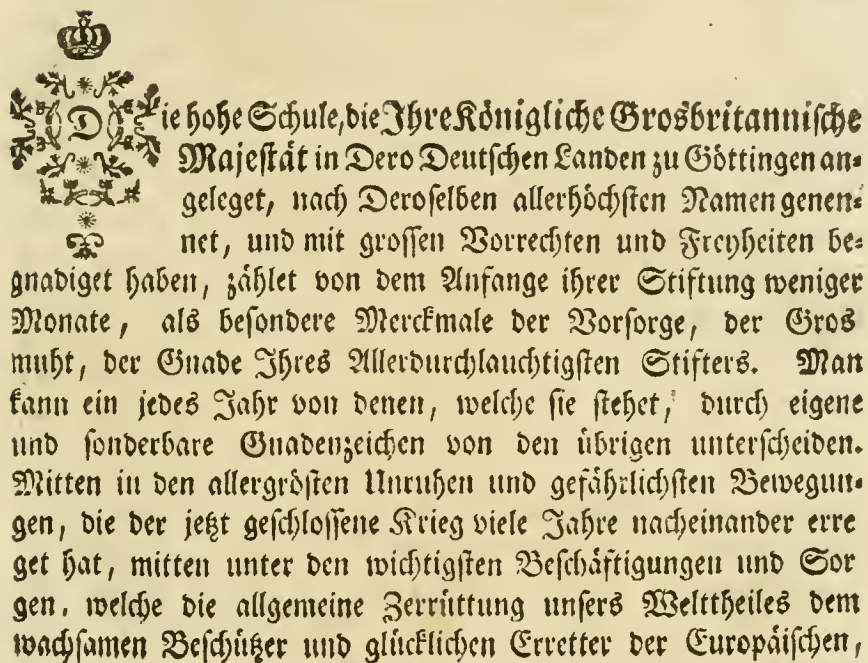 Die hohe Schule, die Ihre Königliche Grosbritannische
Majestät in Dero Deutschen Landen zu Göttingen an-
geleget, nach Deroselben allerhöchsten Namen genen-
net, und mit grossen Vorrechten und Freyheiten be-
gnadiget haben, zählet von dem Anfange ihrer Stiftung weniger
Monate, als besondere Merckmale der Vorsorge, der Gros
muht, der Gnade Ihres Allerdurchlauchtigsten Stifters. Man
kann ein jedes Jahr von denen, welche sie stehet, durch eigene
und sonderbare Gnadenzeichen von den übrigen unterscheiden.
Mitten in den allergrösten Unruhen und gefährlichsten Bewegun-
gen, die der jetzt geschlossene Krieg viele Jahre nacheinander erre
get hat, mitten unter den wichtigsten Beschäftigungen und Sor
gen, welche die allgemeine Zerrüttung unsers Welttheiles dem
wachsamen Beschützer und glücklichen Erretter der Europäischen,